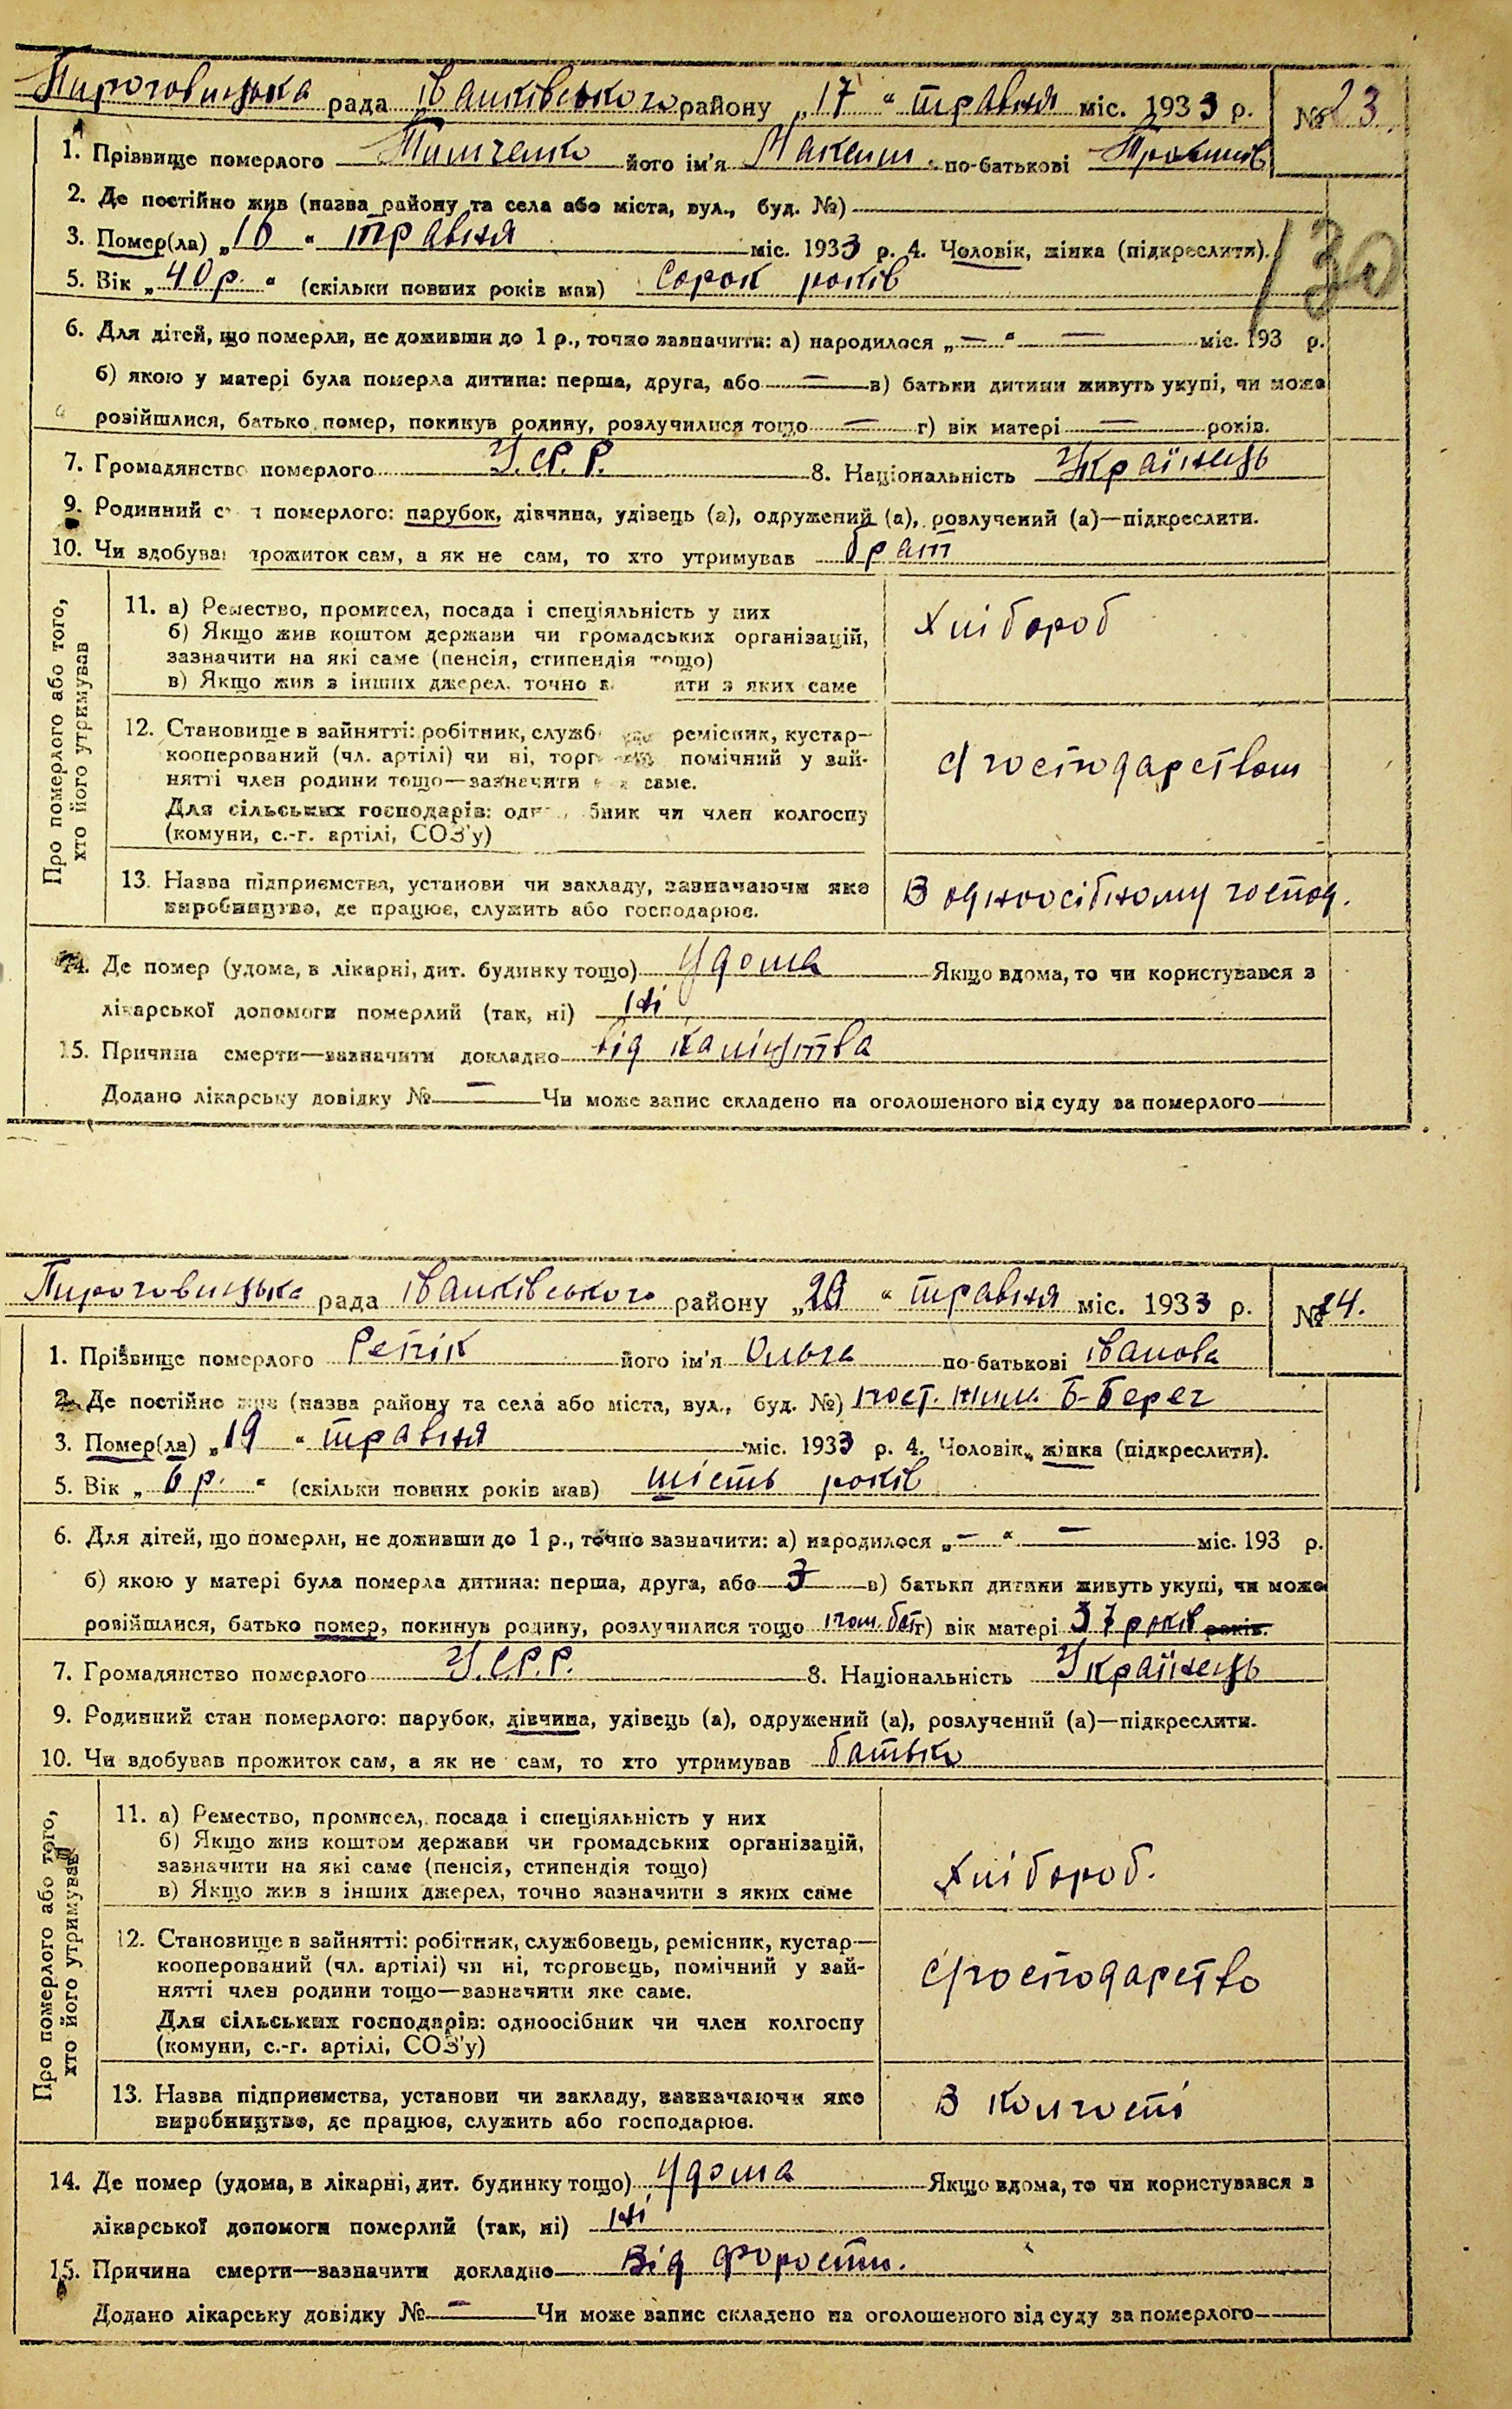 Пироговицька рада Іванківського району „17“ травня міс. 1933 р. № 23.
1. Прізвище померлого Тимченко його ім'я Максим по-батькові
2. Де постійно жив (назва району та села або міста, вул., буд. №)
130
3. Помер(ла) „16“ травня міс. 1933 р. 4. Чоловік, жінка (підкреслити).
5. Вік „40 р.“ (скільки повних років мав) сорок років
6. Для дітей, що померли, не доживши до 1 р., точно зазначити: а) народилося „—“ — міс. 193 р.
б) якою у матері була померла дитина: перша, друга, або — в) батьки дитини живуть укупі, чи може
розійшлися, батько помер, покинув родину, розлучилися тощо — г) вік матері — років.
7. Громадянство померлого У.С.Р.Р. 8. Національність Українець
9. Родинний с т померлого: парубок, дівчина, удівець (а), одружений (а), розлучений (а)—підкреслити.
10. Чи здобував прожиток сам, а як не сам, то хто утримував брат
Про померлого або того, хто його утримував
11. а) Ремество, промисел, посада і спеціяльність у них
б) Якщо жив коштом держави чи громадських організацій,
зазначити на які саме (пенсія, стипендія тощо)
в) Якщо жив з інших джерел, точно з ити з яких саме
Хлібороб
12. Становище в зайнятті: робітник, служб ремісник, кустар—
кооперований (чл. артілі) чи ні, торг помічний у зай-
нятті член родини тощо—зазначити саме.
Для сільських господарів: од бник чи член колгоспу
(комуни, с.-г. артілі, СОЗ'у)
господарством
13. Назва підприємства, установи чи закладу, зазначаючи яке
виробництво, де працює, служить або господарює.
В одноосібному господ.
14. Де помер (удома, в лікарні, дит. будинку тощо) Удома Якщо вдома, то чи користувався з
лікарської допомоги померлий (так, ні) ні
15. Причина смерти—зазначити докладно від каліцтва
Додано лікарську довідку № — Чи може запис складено на оголошеного від суду за померлого—
Пироговицька рада Іванківського району „20“ травня міс. 1933 р. № 24.
1. Прізвище померлого Репік його ім'я Ольга по-батькові Іванова
2. Де постійно жив (назва району та села або міста, вул., буд. №) пост. жил. Б-Берег
3. Помер(ла) „19“ травня міс. 1933 р. 4. Чоловік, жінка (підкреслити).
5. Вік „6 р.“ (скільки повних років мав) шість років
6. Для дітей, що померли, не доживши до 1 р., точно зазначити: а) народилося „—“ — міс. 193 р.
б) якою у матері була померла дитина: перша, друга, або 3 в) батьки дитини живуть укупі, чи може
розійшлися, батько помер, покинув родину, розлучилися тощо г) вік матері 37 років років.
7. Громадянство померлого У.С.Р.Р. 8. Національність Українець
9. Родинний стан померлого: парубок, дівчина, удівець (а), одружений (а), розлучений (а)—підкреслити.
10. Чи здобував прожиток сам, а як не сам, то хто утримував батько
Про померлого або того, хто його утримував
11. а) Ремество, промисел, посада і спеціяльність у них
б) Якщо жив коштом держави чи громадських організацій,
зазначити на які саме (пенсія, стипендія тощо)
в) Якщо жив з інших джерел, точно зазначити з яких саме
Хлібороб.
12. Становище в зайнятті: робітник, службовець, ремісник, кустар—
кооперований (чл. артілі) чи ні, торговець, помічний у зай-
нятті член родини тощо—зазначити яке саме.
Для сільських господарів: одноосібник чи член колгоспу
(комуни, с.-г. артілі, СОЗ'у)
господарство
13. Назва підприємства, установи чи закладу, зазначаючи яке
виробництво, де працює, служить або господарює.
В колгоспі
14. Де помер (удома, в лікарні, дит. будинку тощо) Удома Якщо вдома, то чи користувався з
лікарської допомоги померлий (так, ні) ні
15. Причина смерти—зазначити докладно Від форости.
Додано лікарську довідку № — Чи може запис складено на оголошеного від суду за померлого—